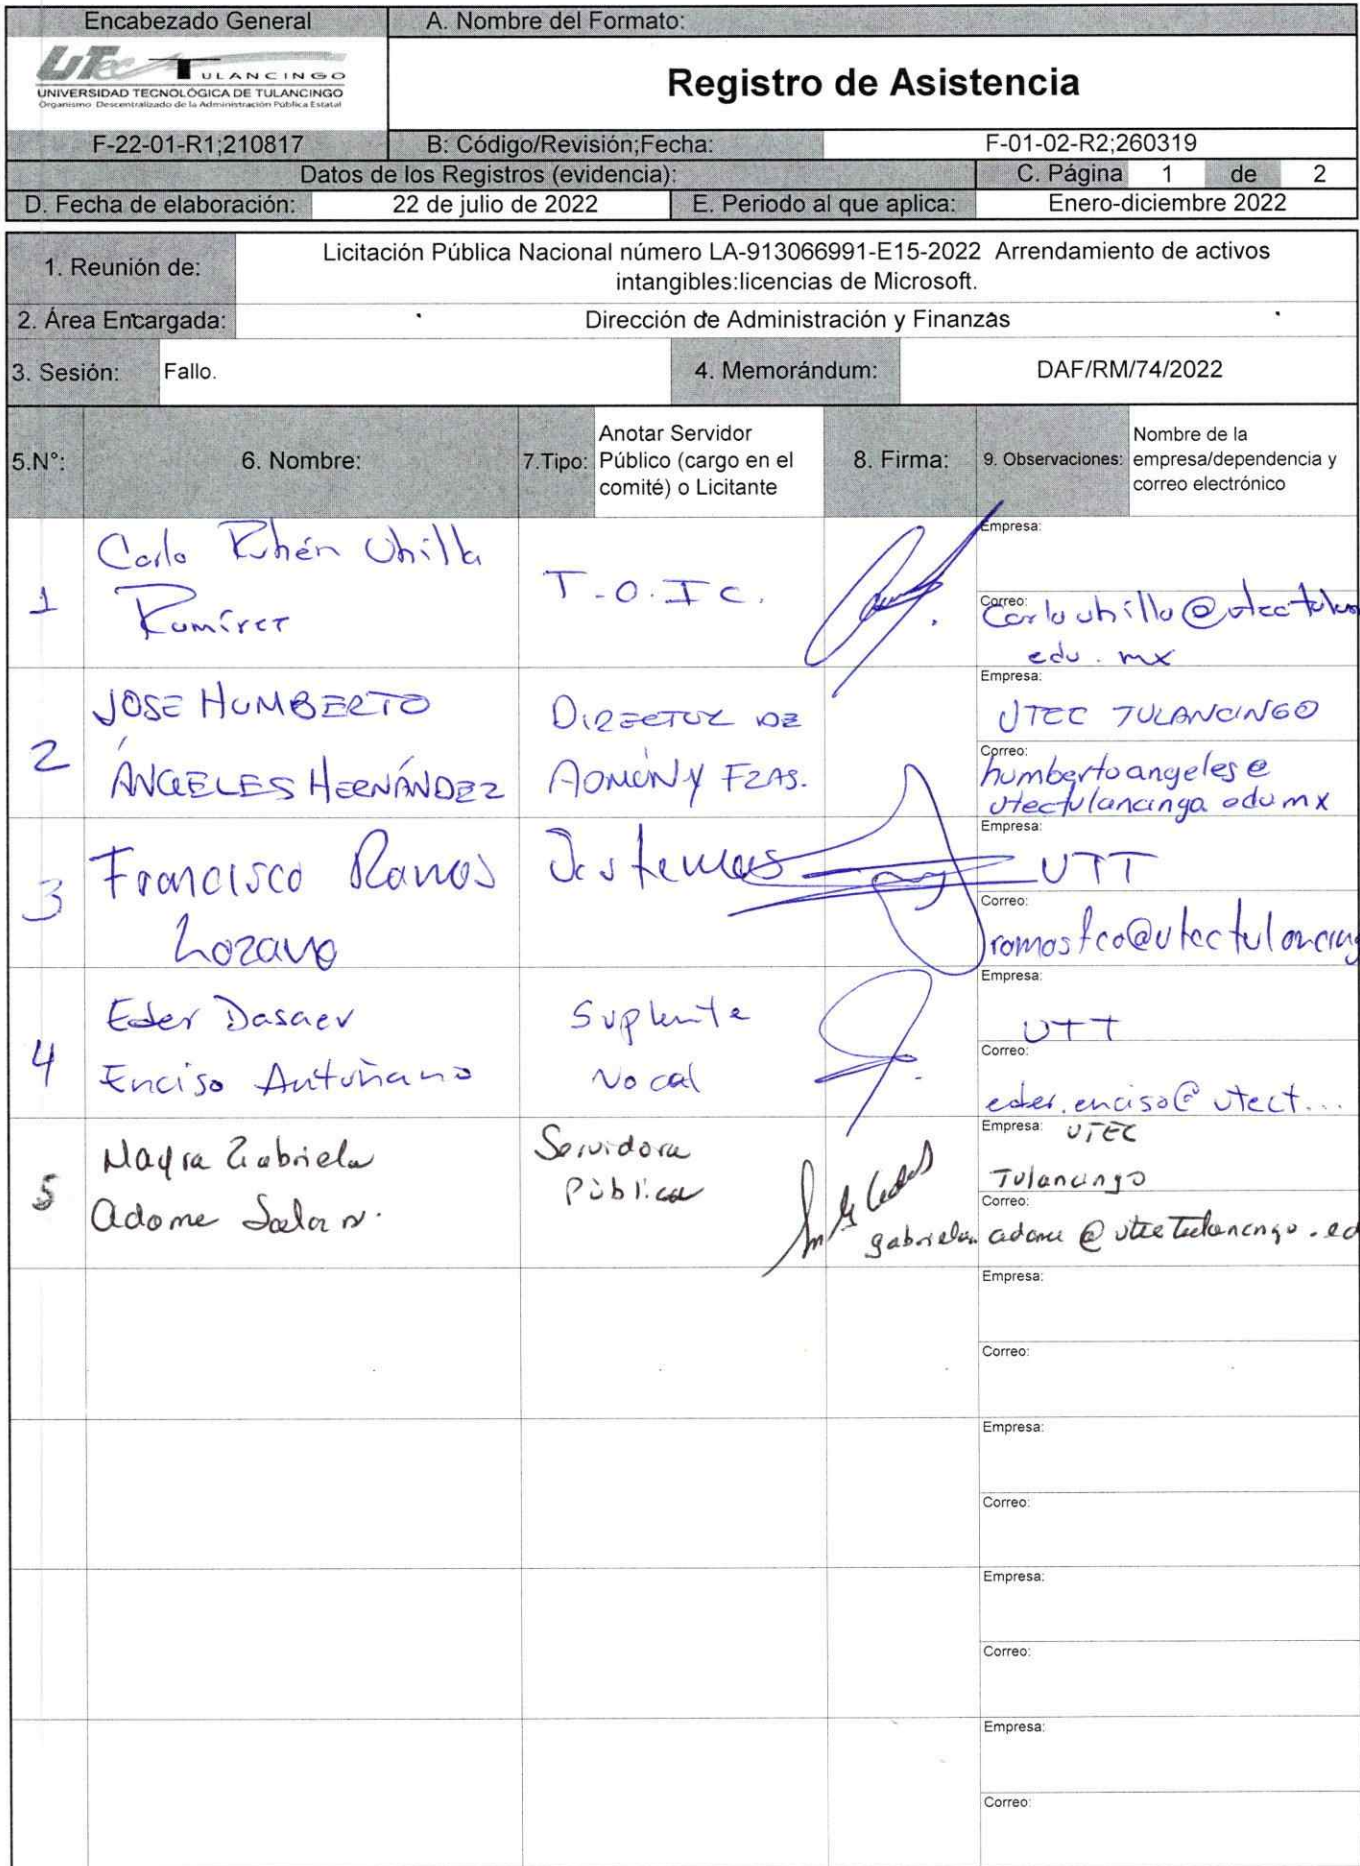 Encabezado General
A. Nombre del Formato:
UTec TULANCINGO
UNIVERSIDAD TECNOLÓGICA DE TULANCINGO
Organismo Descentralizado de la Administración Pública Estatal
Registro de Asistencia
F-22-01-R1;210817
B: Código/Revisión;Fecha:
F-01-02-R2;260319
Datos de los Registros (evidencia):
C. Página 1 de 2
D. Fecha de elaboración:
22 de julio de 2022
E. Periodo al que aplica:
Enero-diciembre 2022
1. Reunión de:
Licitación Pública Nacional número LA-913066991-E15-2022 Arrendamiento de activos
intangibles:licencias de Microsoft.
2. Área Encargada:
Dirección de Administración y Finanzas
3. Sesión:
Fallo.
4. Memorándum:
DAF/RM/74/2022
5.N°:
6. Nombre:
7.Tipo:
Anotar Servidor
Público (cargo en el
comité) o Licitante
8. Firma:
9. Observaciones:
Nombre de la
empresa/dependencia y
correo electrónico
1
Carlo Rubén Ubilla
Ramírez
T.O.I C.
Empresa:
Correo:
edu. mx
2
JOSE HUMBERTO
ÁNGELES HERNÁNDEZ
DIRECTOR DE
ADMÓN Y FZAS.
Empresa:
UTEC TULANCINGO
Correo:
humbertoangeles@
utectulancingo edu mx
3
Francisco Ramos
Lozano
Sistemas
Empresa:
UTT
Correo:
ramosfco@utectulancing
4
Eder Dasaev
Enciso Antuñano
Suplente
Vocal
Empresa:
UTT
Correo:
eder.enciso@utect...
5
Mayra Gabriela
Adome
Servidora
Pública
Empresa: UTEC
Tulancingo
Correo:
adome @utectulancingo.ed
Empresa:
Correo:
Empresa:
Correo:
Empresa:
Correo:
Empresa:
Correo: